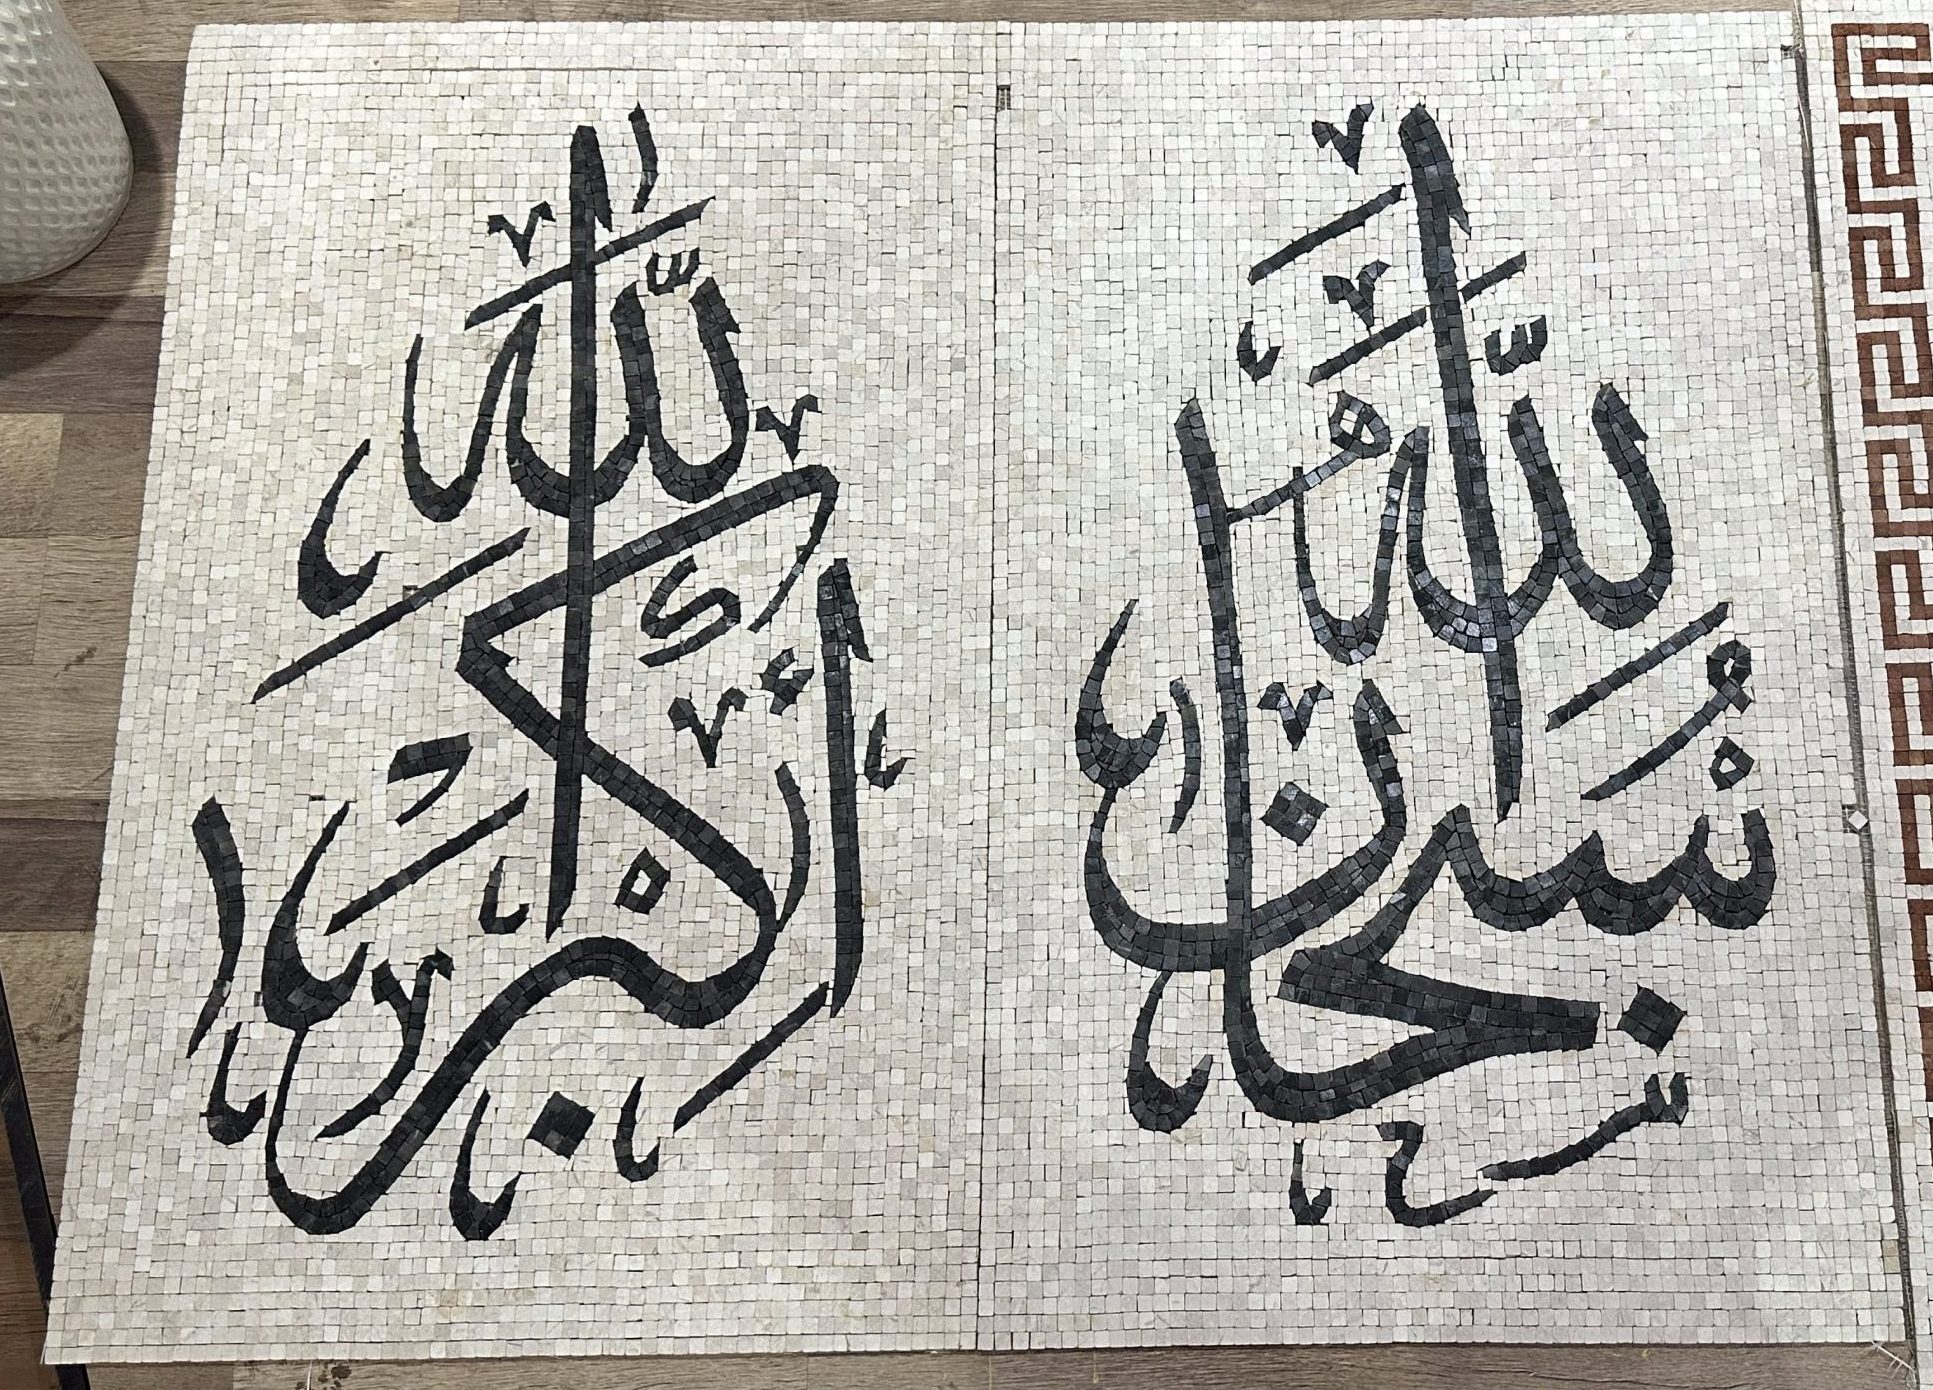 سبحان الله
الله أكبر